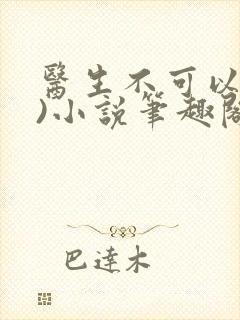 醫生不可以
)小說筆趣閣
巴達木